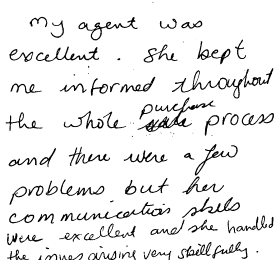 My agent was
excellent. She kept
me informed throughout
the whole purchase process
and there were a few
problems but her
communication skills
were excellent and she handled
the issues arising very skillfully.